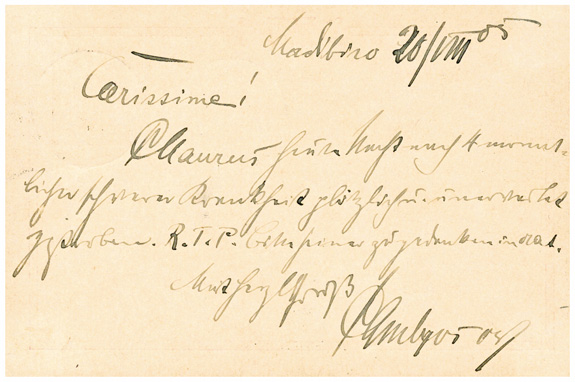 Madibiro 20/VIII 05
Carissime!
P Maurus heute Nacht nach 4 monat-
licher schwerer Krankheit plötzlich u. unerwartet
gestorben. R. I. P. Bitte seiner zu gedenken in orat.
Mit herzl Gruß
P Ambros